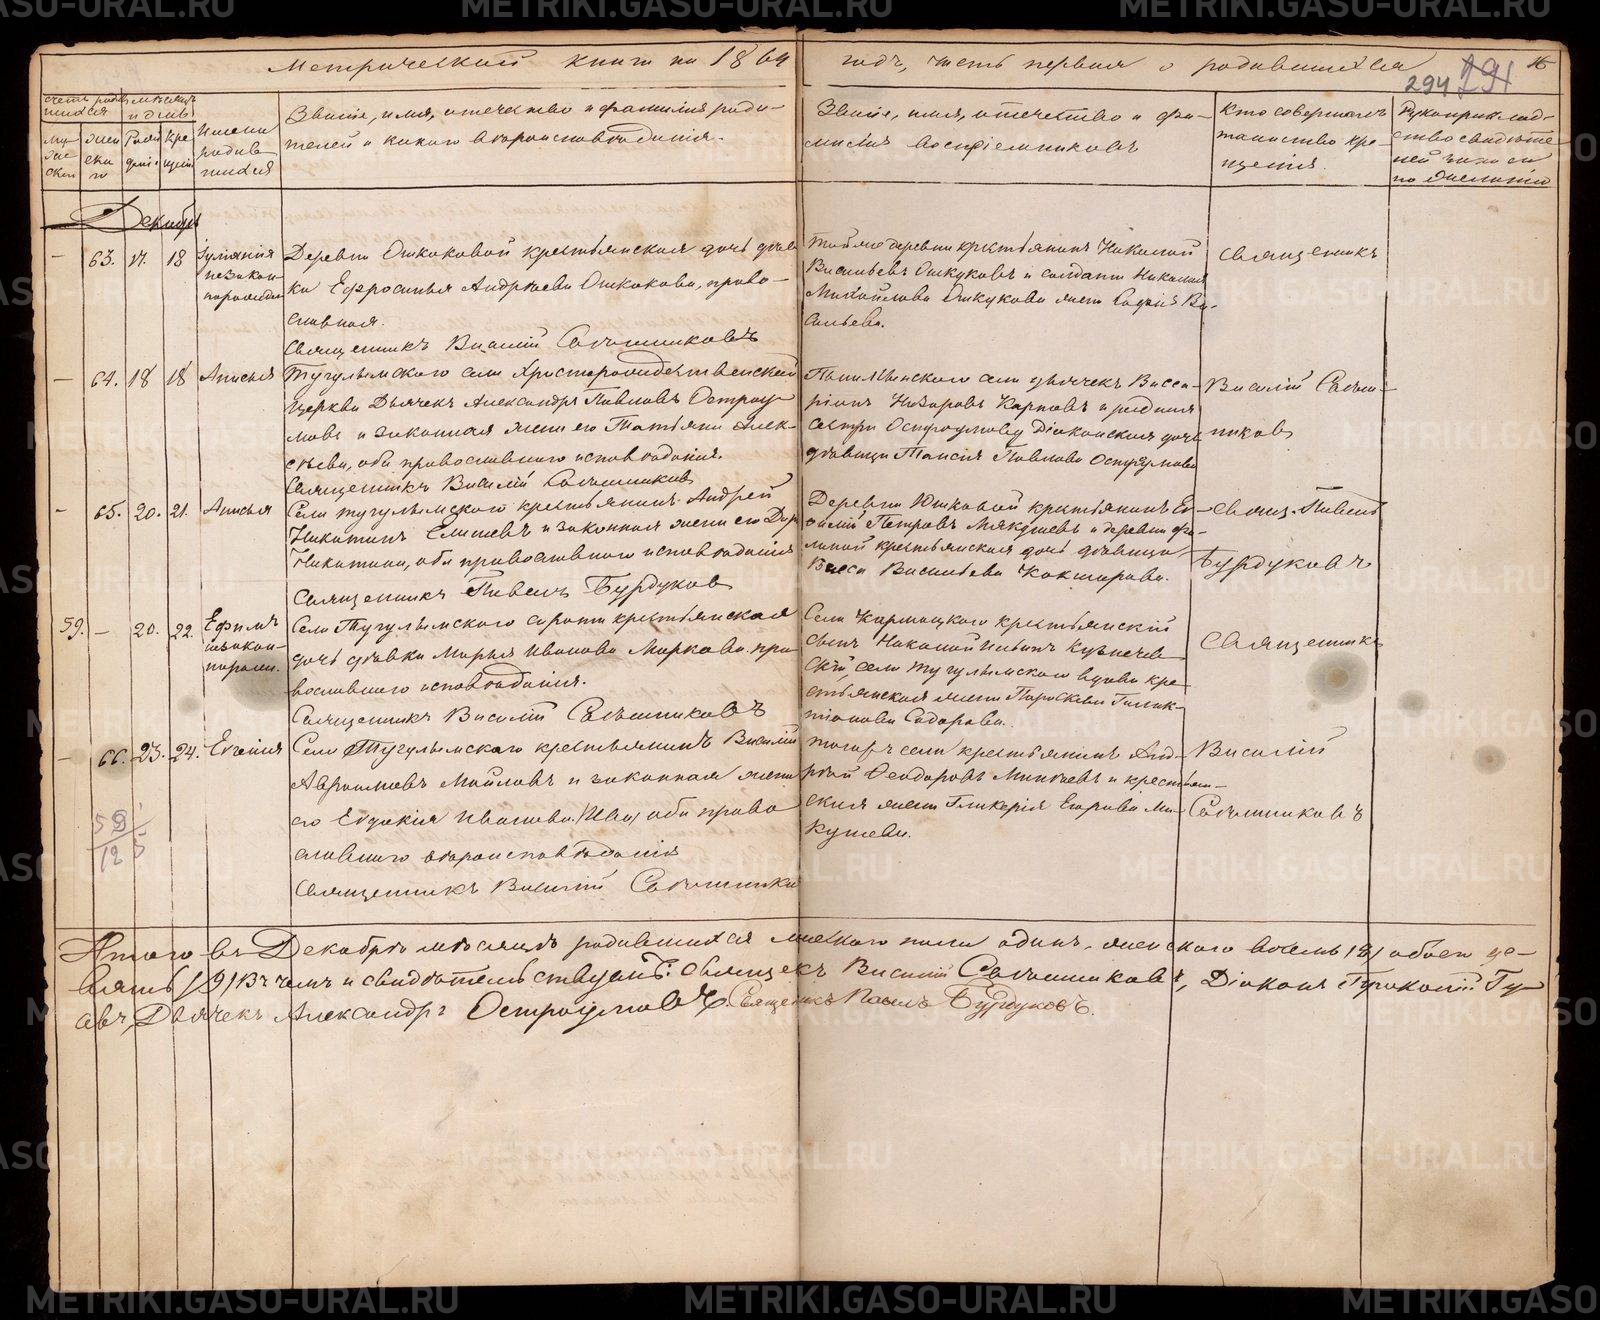 Метрической книги на 1869 годъ, часть первая о родившихся
294
291
Счетъ родив
шихся
Мѣсяцъ
и день
му
жес
ска
жен
ска
го
Рож
денія
Кре
щенія
Имена
родив
шихся
Званіе, имя, отечество и фамилія роди-
телей и какого вѣроисповѣданія.
Званіе, имя, отечество и фа-
милія воспріемниковъ
Кто совершалъ
таинство кре
щенія.
Рукоприклад-
ство свидѣте
лей записи
по желанію
Декабрь
— 63. 17. 18 Іуліанія
незакон-
Деревни Ошкуковой крестьянская дочь дѣв
ка Ефросинья Андреева Ошкукова, право-
славная.
Священникъ Василій Сапожниковъ
Тойже деревни крестьянинъ Николай
Васильевъ Ошкуковъ и солдата Николая
Михайлова Ошкукова жена Софія Ва-
сильева.
Священникъ
— 64. 18 18 Анисья
Тугулымского села Христорождественской
Церкви Дьячекъ Александръ Павловъ Остроу
мовъ и законная жена его Татьяна Алек-
сѣева, оба православного исповѣданія.
Священникъ Василій Сапожников
села дьячекъ Висса-
ріонъ Назаровъ Карповъ и родная
сестра Остроумову Діаконская дочь
дѣвица Таисія Павлова Остроумова
Василій Сапож-
ников
— 65. 20. 21. Анисья
Села тугулымского крестьянинъ Андрей
Никитинъ и законная жена его Дар
Никитина, оба православного исповѣданія
Священникъ Павелъ Бурдуков
Деревни Юшковой крестьянинъ
Петровъ и деревни
крестьянская дочь дѣвица
Васса Васильева Кокшарова.
Свящ. Павелъ
Бурдуковъ
59. — 20. 22. Ефимъ
незакон-
Села Тугулымского сирота крестьянская
дочь дѣвка Марья Иванова Маркова. пра
вославного исповѣданія.
Священникъ Василій Сапожниковъ
Села Кармацкого крестьянскій
сынъ Николай
скій, села тугулымского вдова кре
стьянская жена Парасковья Галак-
тіонова Сидорова.
Священникъ
— 66. 23. 24. Евгенія
Села Тугулымского крестьянинъ Василій
Авраамовъ Мойловъ и законная жена
его Евдокія Иванова, оба право
славного вѣроисповѣданія
Священникъ Василій Сапожников
тогожъ села крестьянинъ Анд-
рей Ѳеодоровъ Микѣевъ и крестьян-
ская жена Гликерія Егорова Ми-
кушева.
Василій
Сапожниковъ
Итого въ Декабрѣ мѣсяцѣ родившихся мужского пола одинъ, женского восемь /8/ обоего де-
вять /9/ Въ чемъ и свидѣтельствуемъ: Священникъ Василій Сапожниковъ, Діаконъ Прокопій Гу
Дьячекъ Александръ Остроумовъ Священикъ Павелъ Бурдуковъ.
METRIKI.GASO-URAL.RU